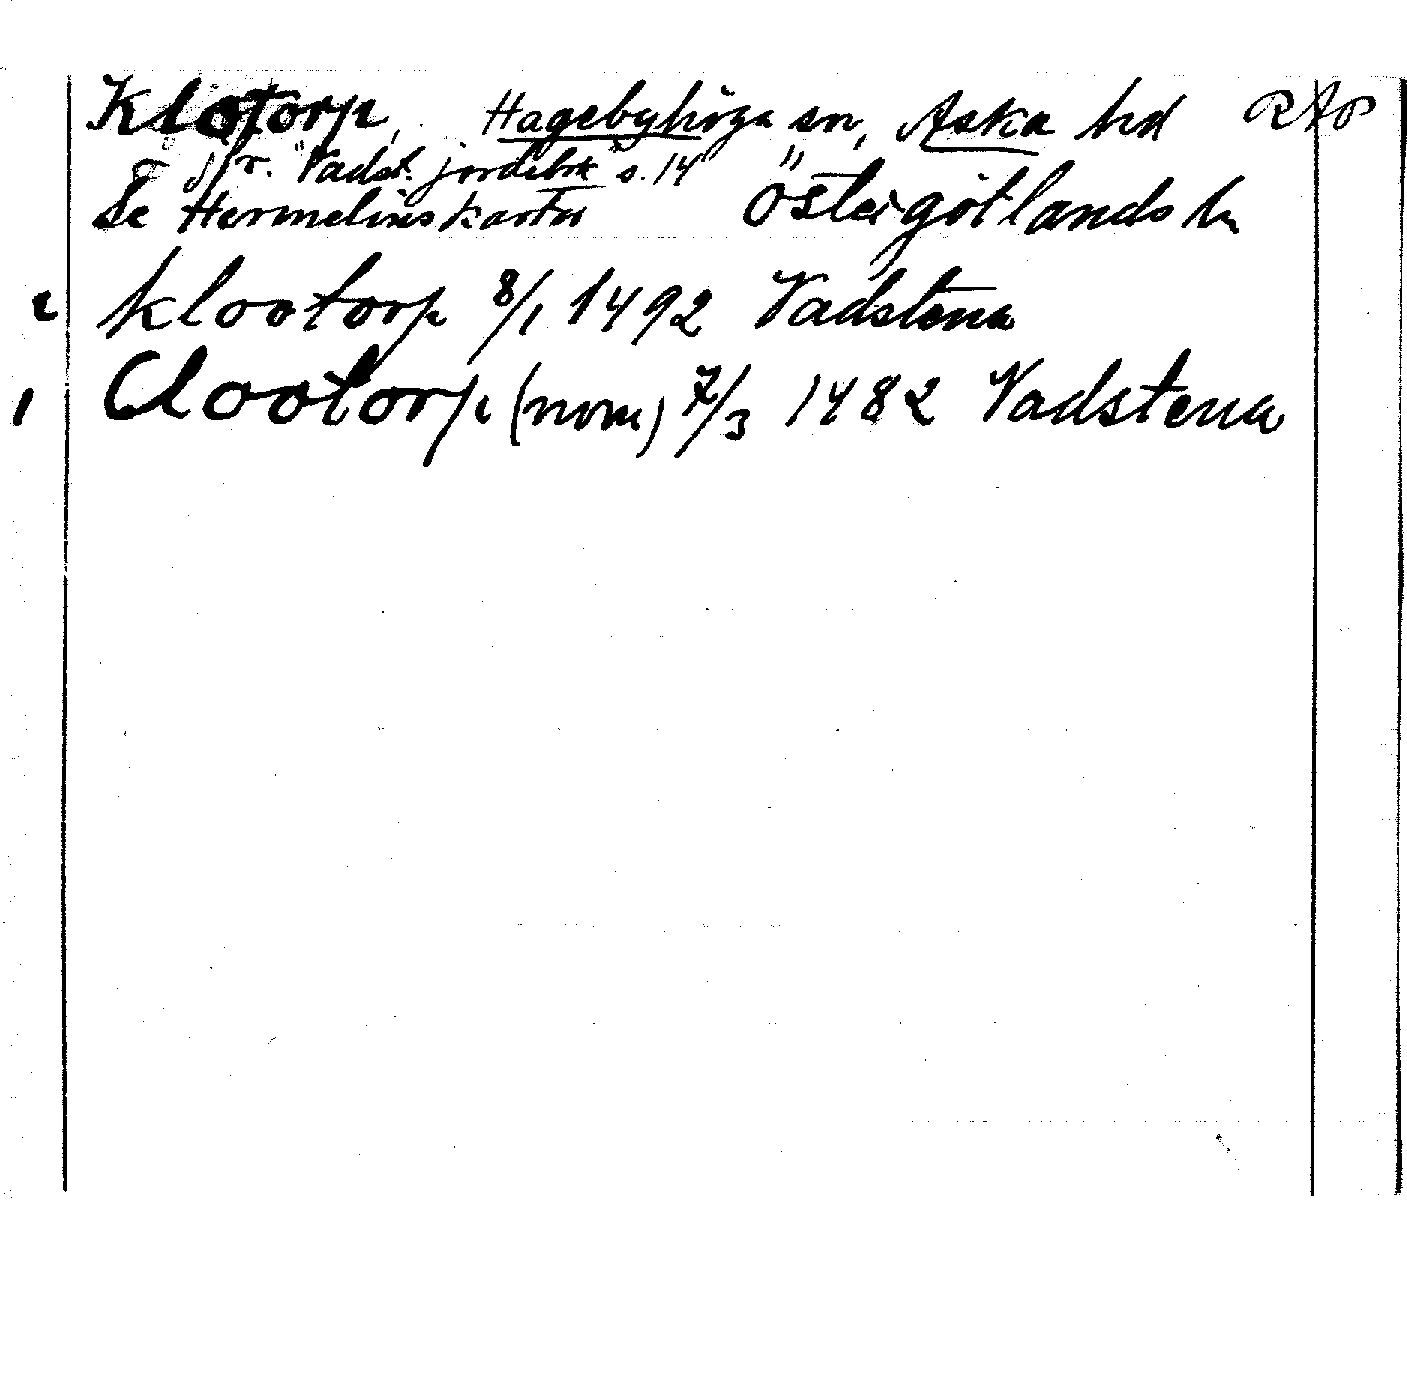 Klotorp, Hagebyhöga sn, Aska hd RAP
jfr. "Vadst. jordebok" s. 14
Se Hermelins karta Östergötlands ln
2 Klootorp 8/1 1492 Vadstena
1 Clootorp (nom) 7/3 1482 Vadstena